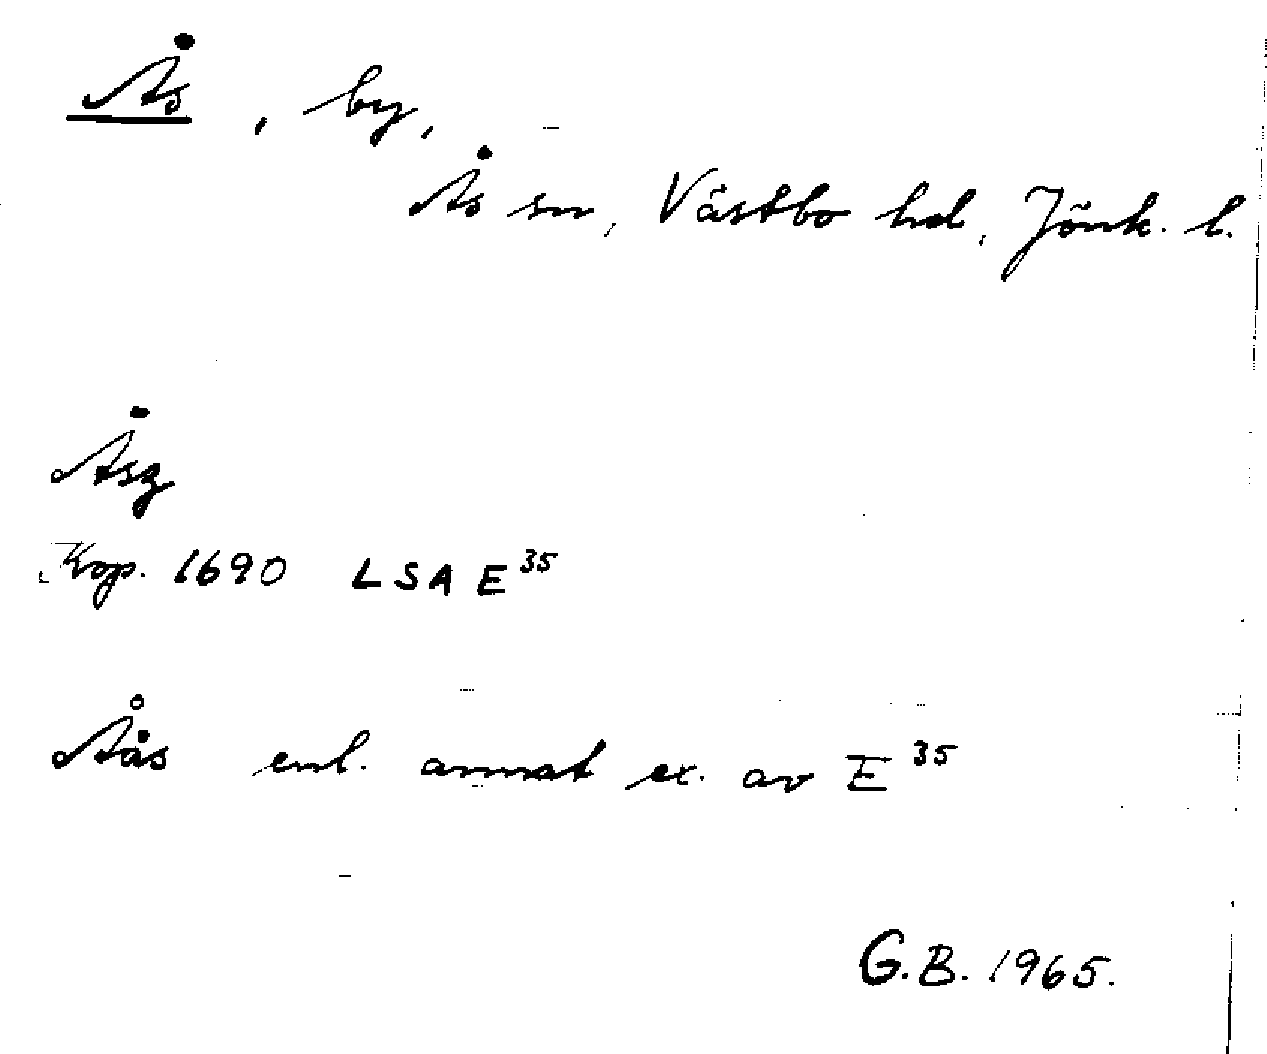 Ås, by,
Ås sn, Västbo hd, Jönk. l.
Åsz
Kop. 1690 LSA E³⁵
Åås enl. annat ex. av E³⁵
G.B. 1965.